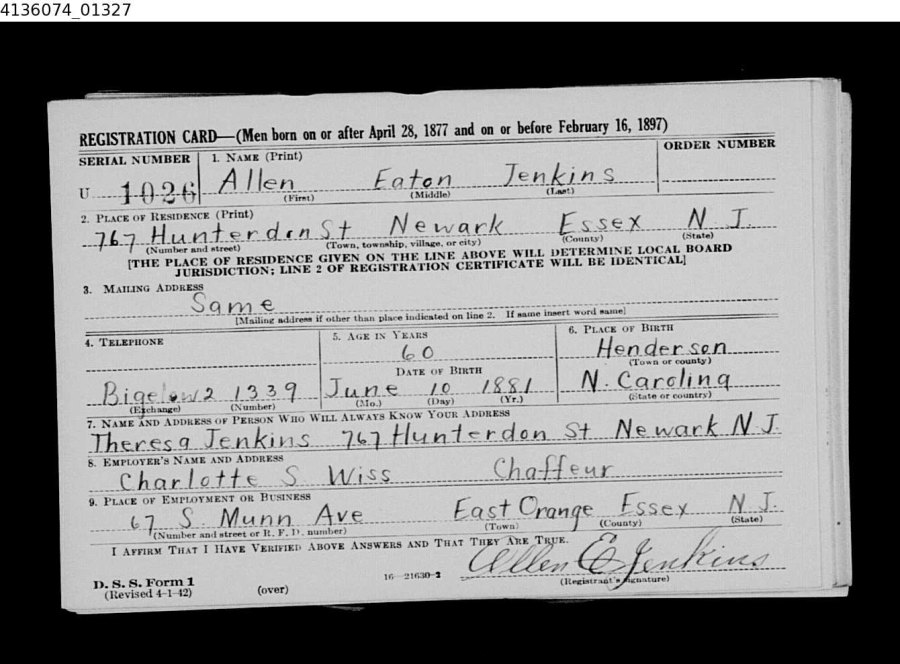 4136074_01327
REGISTRATION CARD—(Men born on or after April 28, 1877 and on or before February 16, 1897)
SERIAL NUMBER 1. NAME (Print) ORDER NUMBER
U 1026 Allen Eaton Jenkins
(First) (Middle) (Last)
2. PLACE OF RESIDENCE (Print)
767 Hunterdon St Newark Essex N. J.
(Number and street) (Town, township, village, or city) (County) (State)
[THE PLACE OF RESIDENCE GIVEN ON THE LINE ABOVE WILL DETERMINE LOCAL BOARD
JURISDICTION; LINE 2 OF REGISTRATION CERTIFICATE WILL BE IDENTICAL]
3. MAILING ADDRESS
Same
[Mailing address if other than place indicated on line 2. If same insert word same]
4. TELEPHONE 5. AGE IN YEARS 6. PLACE OF BIRTH
60 Henderson
(Town or county)
DATE OF BIRTH
Bigelow2 1339 June 10 1881 N. Carolina
(Exchange) (Number) (Mo.) (Day) (Yr.) (State or country)
7. NAME AND ADDRESS OF PERSON WHO WILL ALWAYS KNOW YOUR ADDRESS
Theresa Jenkins 767 Hunterdon St Newark N.J.
8. EMPLOYER'S NAME AND ADDRESS
Charlotte S Wiss Chaffeur
9. PLACE OF EMPLOYMENT OR BUSINESS
67 S. Munn Ave East Orange Essex N J.
(Number and street or R. F. D. number) (Town) (County) (State)
I AFFIRM THAT I HAVE VERIFIED ABOVE ANSWERS AND THAT THEY ARE TRUE.
Allen E Jenkins
D. S. S. Form 1 16—21630-2 (Registrant's signature)
(Revised 4-1-42) (over)